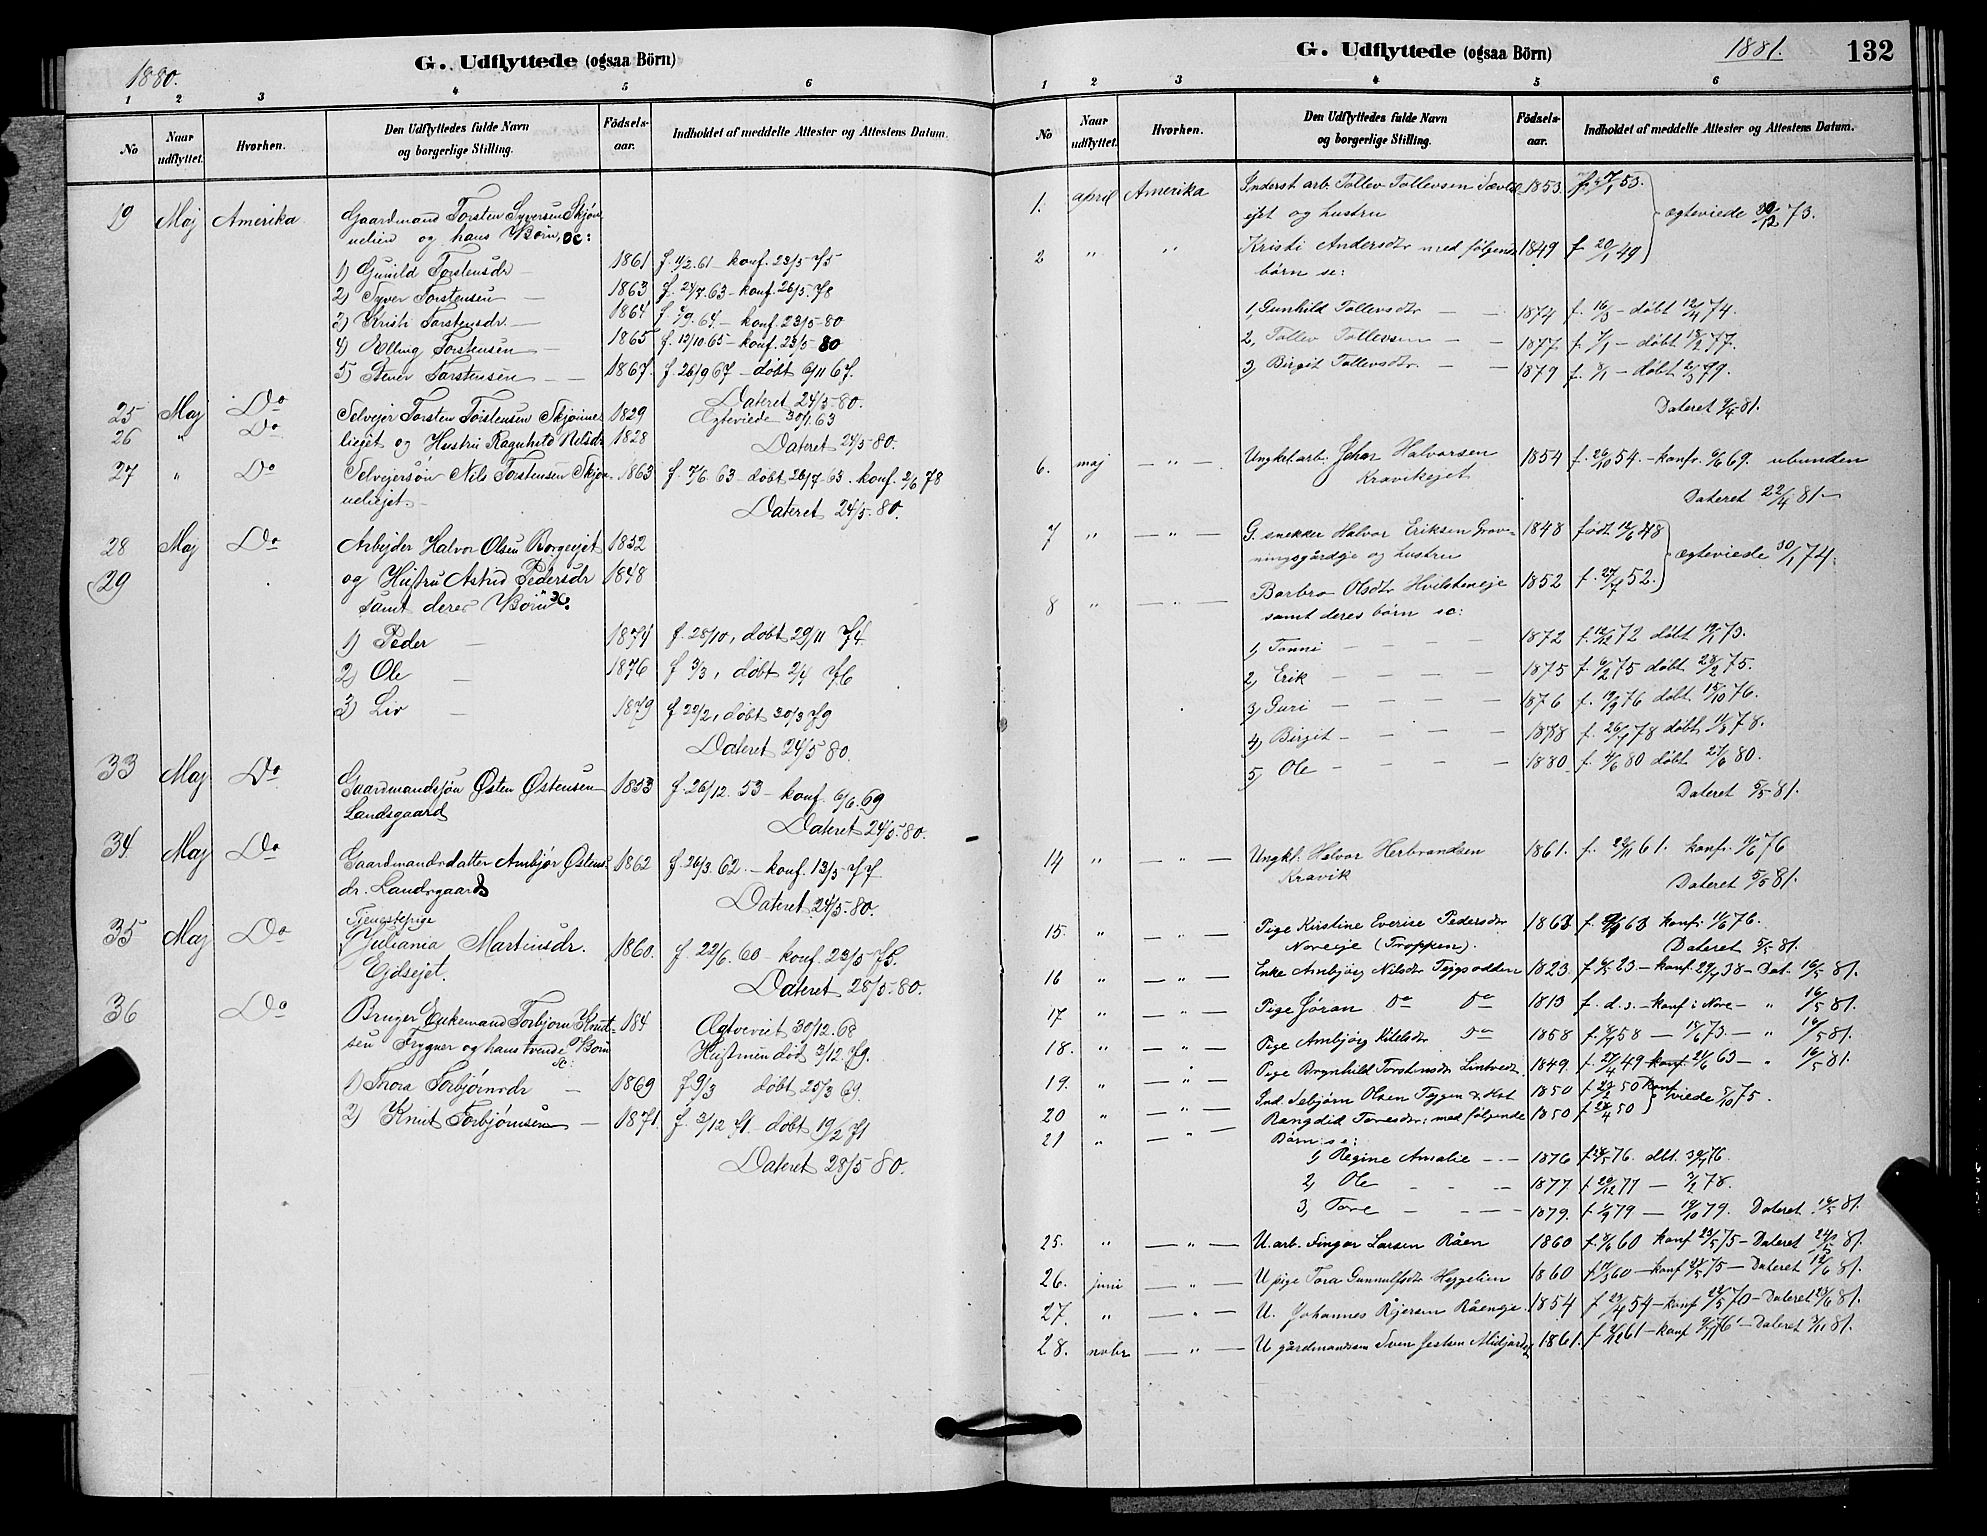 G. Udflyttede (ogsaa Börn)
1880.
1 2 3 4 5 6
No
Naar udflyttet.
Hvorhen.
Den Udflyttedes fulde Navn
og borgerlige Stilling.
Födsels-
aar.
Indholdet af meddelte Attester og Attestens Datum.
19 Maj Amerika Gaardmand Torsten Syversen Skjön
uelien og hans Börn, sc:
1) Gunild Torstensdr — 1861 f. 4/2. 61 - konf. 23/5 - 75
2) Syver Torstensen — 1863 f. 24/7. 63 - konf. 26/5. 78
3) Kristi Torstensdr. — 1864 f. 7/9. 64. - konf. 23/5 - 80
4) Elling Torstensen — 1865 f. 13/10. 65 - konf. 23/5 - 80
5) Stener Torstensen — 1867. f 26/9 67 - döbt 6/11 67.
Dateret 24/5 - 80.
25 Maj Do Selveier Torsten Torstensen Skjönne 1829 Ægteviede 30/1. 63
26 " Do liejet og Hustru Ragnhild Nilsdr 1828 Dateret 24/5 - 80.
27 " Do Selvejersön Nils Torstensen Skjön 1863 f. 7/6. 63 - döbt 26/7 - 63. konf. 2/6 78
ueliejet - Dateret 24/5 - 80.
28 Maj Do Arbejder Halvor Olsen Borgeejet 1852
29 og Hustru Astrid Pedersdr 1848
samt deres Börn sc:
1) Peder — 1874 f. 28/10, döbt 29/11 74.
2) Ole — 1876 f 3/3, döbt 2/4 76
3) Liv — 1879 f 22/2, döbt 30/3 79
Dateret 24/5 - 80.
33 Maj Do Gaardmandssön Østen Østensen 1853 f. 26/12. 53 - konf. 6/6. 69
Landsgaard Dateret 24/5 - 80.
34 Maj Do Gaardmandsdatter Ambjör Østens 1862 f. 26/3. 62. - konf. 13/5 - 77
dr. Landsgaard Dateret 24/5 - 80.
35 Maj Do Tjenestepige
Juliania Martinsdr. 1860. f 22/6. 60 - konf. 23/5 75.
Eidsejet. Dateret 28/5 - 80.
36 Do Bruger Enkemand Torbjörn Knut- 184 Ægteviet 30/12. 68
sen Trygner og hans tvende Börn Hustruen död 3/12. 79.
sc:
1) Thora Torbjörnsdr — 1869 f 9/3 döbt 25/3 69.
2) Knut Torbjörnsen — 1871. f. 3/12 71. döbt 19/2 71
Dateret 28/5 80.
G. Udflyttede (ogsaa Börn)
1881.
132
1 2 3 4 5 6
No
Naar udflyttet.
Hvorhen.
Den Udflyttedes fulde Navn
og borgerlige Stilling.
Födsels-
aar.
Indholdet af meddelte Attester og Attestens Datum.
1. april Amerika Inderst arb. Tollev Tollevsen 1853
ejet og hustru ægteviede 73.
2 " " Kristi Andersdtr med følgende 1849 f 20/1 49
börn sc:
1, Gunhild Tollevsdtr — — 1874 f. 16/3 - döbt 12/4 74.
2, Tollev Tollevsen — — 1877 f. 7/1 - döbt 18/2 77.
3, Birgit Tollevsdtr — — 1879 f. - döbt 79.
Dateret 81.
6. maj — " — Ungkarl arb. Johan Halvorsen 1854 f. 26/10 54. - konfr. 6/6 69. ubunden
Kravikejet Dateret 22/4 81 -
7 " — " — G. snekker Halvor Eriksen Grov- 1848 født 12/6 48
ningsgårdeje og hustru ægteviede 30/1 74.
8 " — " — Barbro Olsdtr Hvilsteneje 1852 f. 27/7 52.
samt deres börn sc:
1, Tonni — — — 1872 f. 12/12 72 döbt 19/1 73.
2, Erik — — — 1875 f. 6/2 75 döbt 28/2 75.
3, Guri — — — 1876 f. 19/9 76 döbt 15/10 76.
4, Birgit — — — 1878 f. 26/7 78 döbt 78.
5, Ole — — — 1880 f. 4/6 80 döbt 27/6 80.
Dateret 5/5 81.
14 " — " — Ungkl. Halvor Herbrandsen 1861. f. 22/11 61. konfr. 11/6 76
Kravik Dateret 5/5 81.
15. " — " — Pige Kirstine Everise Pedersdtr 1861 konfr. 11/6 76.
Noreeje (Troppen). Dateret 5/5 81.
16 " — " — Enke Ambjörg Nilsdtr Tejgsodden 1823. f. 23. - konf. 38 - Dat. 16/5 81.
17 " — " — Pige Jöran do do 1813 f. d. s. - konf i Nore - " 16/5 81.
18. " — " — Pige Ambjörg Kittelsdtr do 1858 f. 58 — 73 - " 16/5 81.
19. " — " — Pige Brynhild Torstensdtr 1849. f. 27/4 49 konf 63 - " 16/5 81.
20 " — " — Ind. Asbjörn Olsen Teggen & Hst 1850 f. 50 konf
21 " — " — Rangdid Toresdtr: med følgende 1850 f 50 viede 5/10 75.
Börn: sc:
1, Regine Amalie - - - 1876 76. dbt. 76.
2, Ole - - - 1877 f. 29/12 77 — 78.
3, Tore - - - 1879. f. 79 — 12/10 79. Dateret 16/5 81.
25. " — " — U. arb. Fingar Larsen Råen 1860 f. 8/6 60 konf 23/5 75 - Dateret 24/5 81.
26. juni — " — U pige Tora Gunnulfsdtr Heggelien 1860 60 - konf 23/5 75 - Dateret 81.
27. " — " — U. Johannes Råeneje 1854 f 23/4 54 - konf 22/5 70 - Dateret 81.
28. nobr — " — U gårdmandssøn Sven 1861. 61 - konf 76 - Dateret 81.